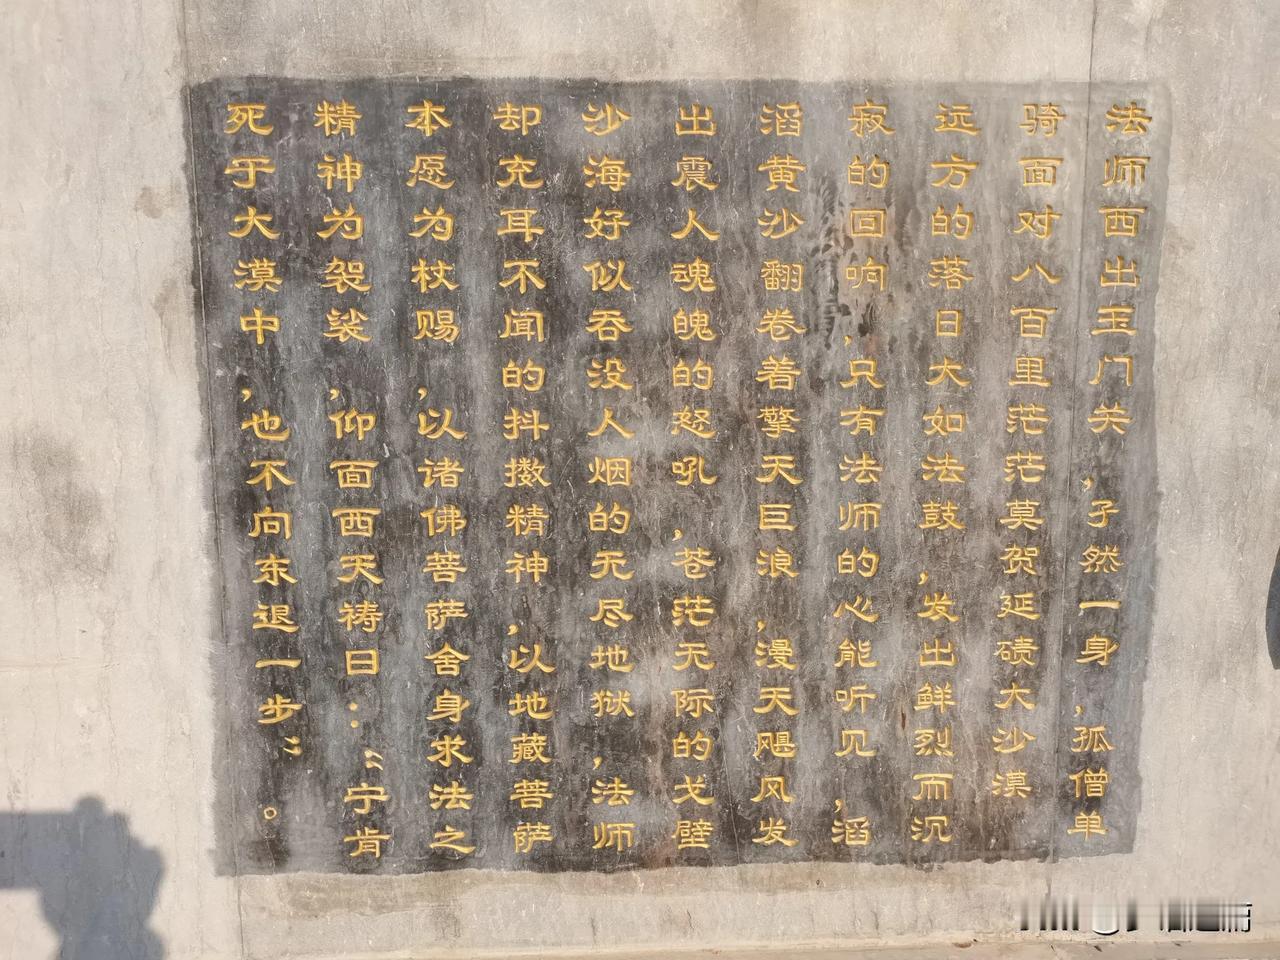 法师西出玉门关，孑然一身，孤僧单
骑面对八百里茫茫莫贺延碛大沙漠
远方的落日大如法鼓，发出鲜烈而沉
寂的回响，只有法师的心能听见，滔
滔黄沙翻卷着擎天巨浪，漫天飓风发
出震人魂魄的怒吼，苍茫无际的戈壁
沙海好似吞没人烟的无尽地狱，法师
却充耳不闻的抖擞精神，以地藏菩萨
本愿为杖赐，以诸佛菩萨舍身求法之
精神为袈裟，仰面西天祷曰：“宁肯
死于大漠中，也不向东退一步”。